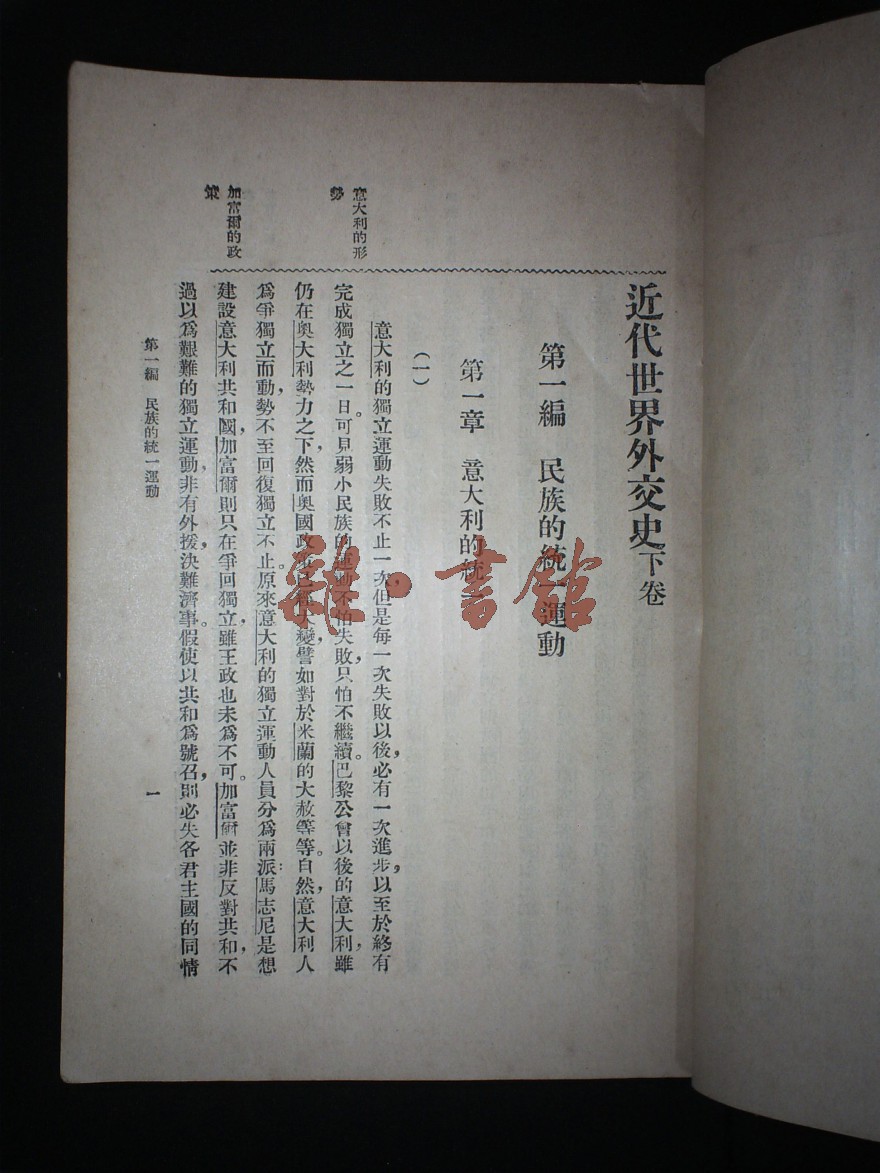 近代世界外交史下卷
第一編 民族的統一運動
第一章 意大利的統一
(一)
意大利的形
勢
意大利的獨立運動失敗不止一次，但是每一次失敗以後，必有一次進步，以至於終有
完成獨立之一日。可見弱小民族的運動不怕失敗，只怕不繼續。巴黎公會以後的意大利，雖
仍在奧大利勢力之下，然而奧國政策已經大變，譬如對於米蘭的大赦等等。自然，意大利人
加富爾的政
策
爲爭獨立而動，勢不至回復獨立不止。原來意大利的獨立運動人員分爲兩派：馬志尼是想
建設意大利共和國，加富爾則只在爭回獨立，雖王政也未爲不可。加富爾並非反對共和，不
過以爲艱難的獨立運動，非有外援決難濟事。假使以共和爲號召，則必失各君主國的同情
第一編 民族的統一運動
一
雜·書館